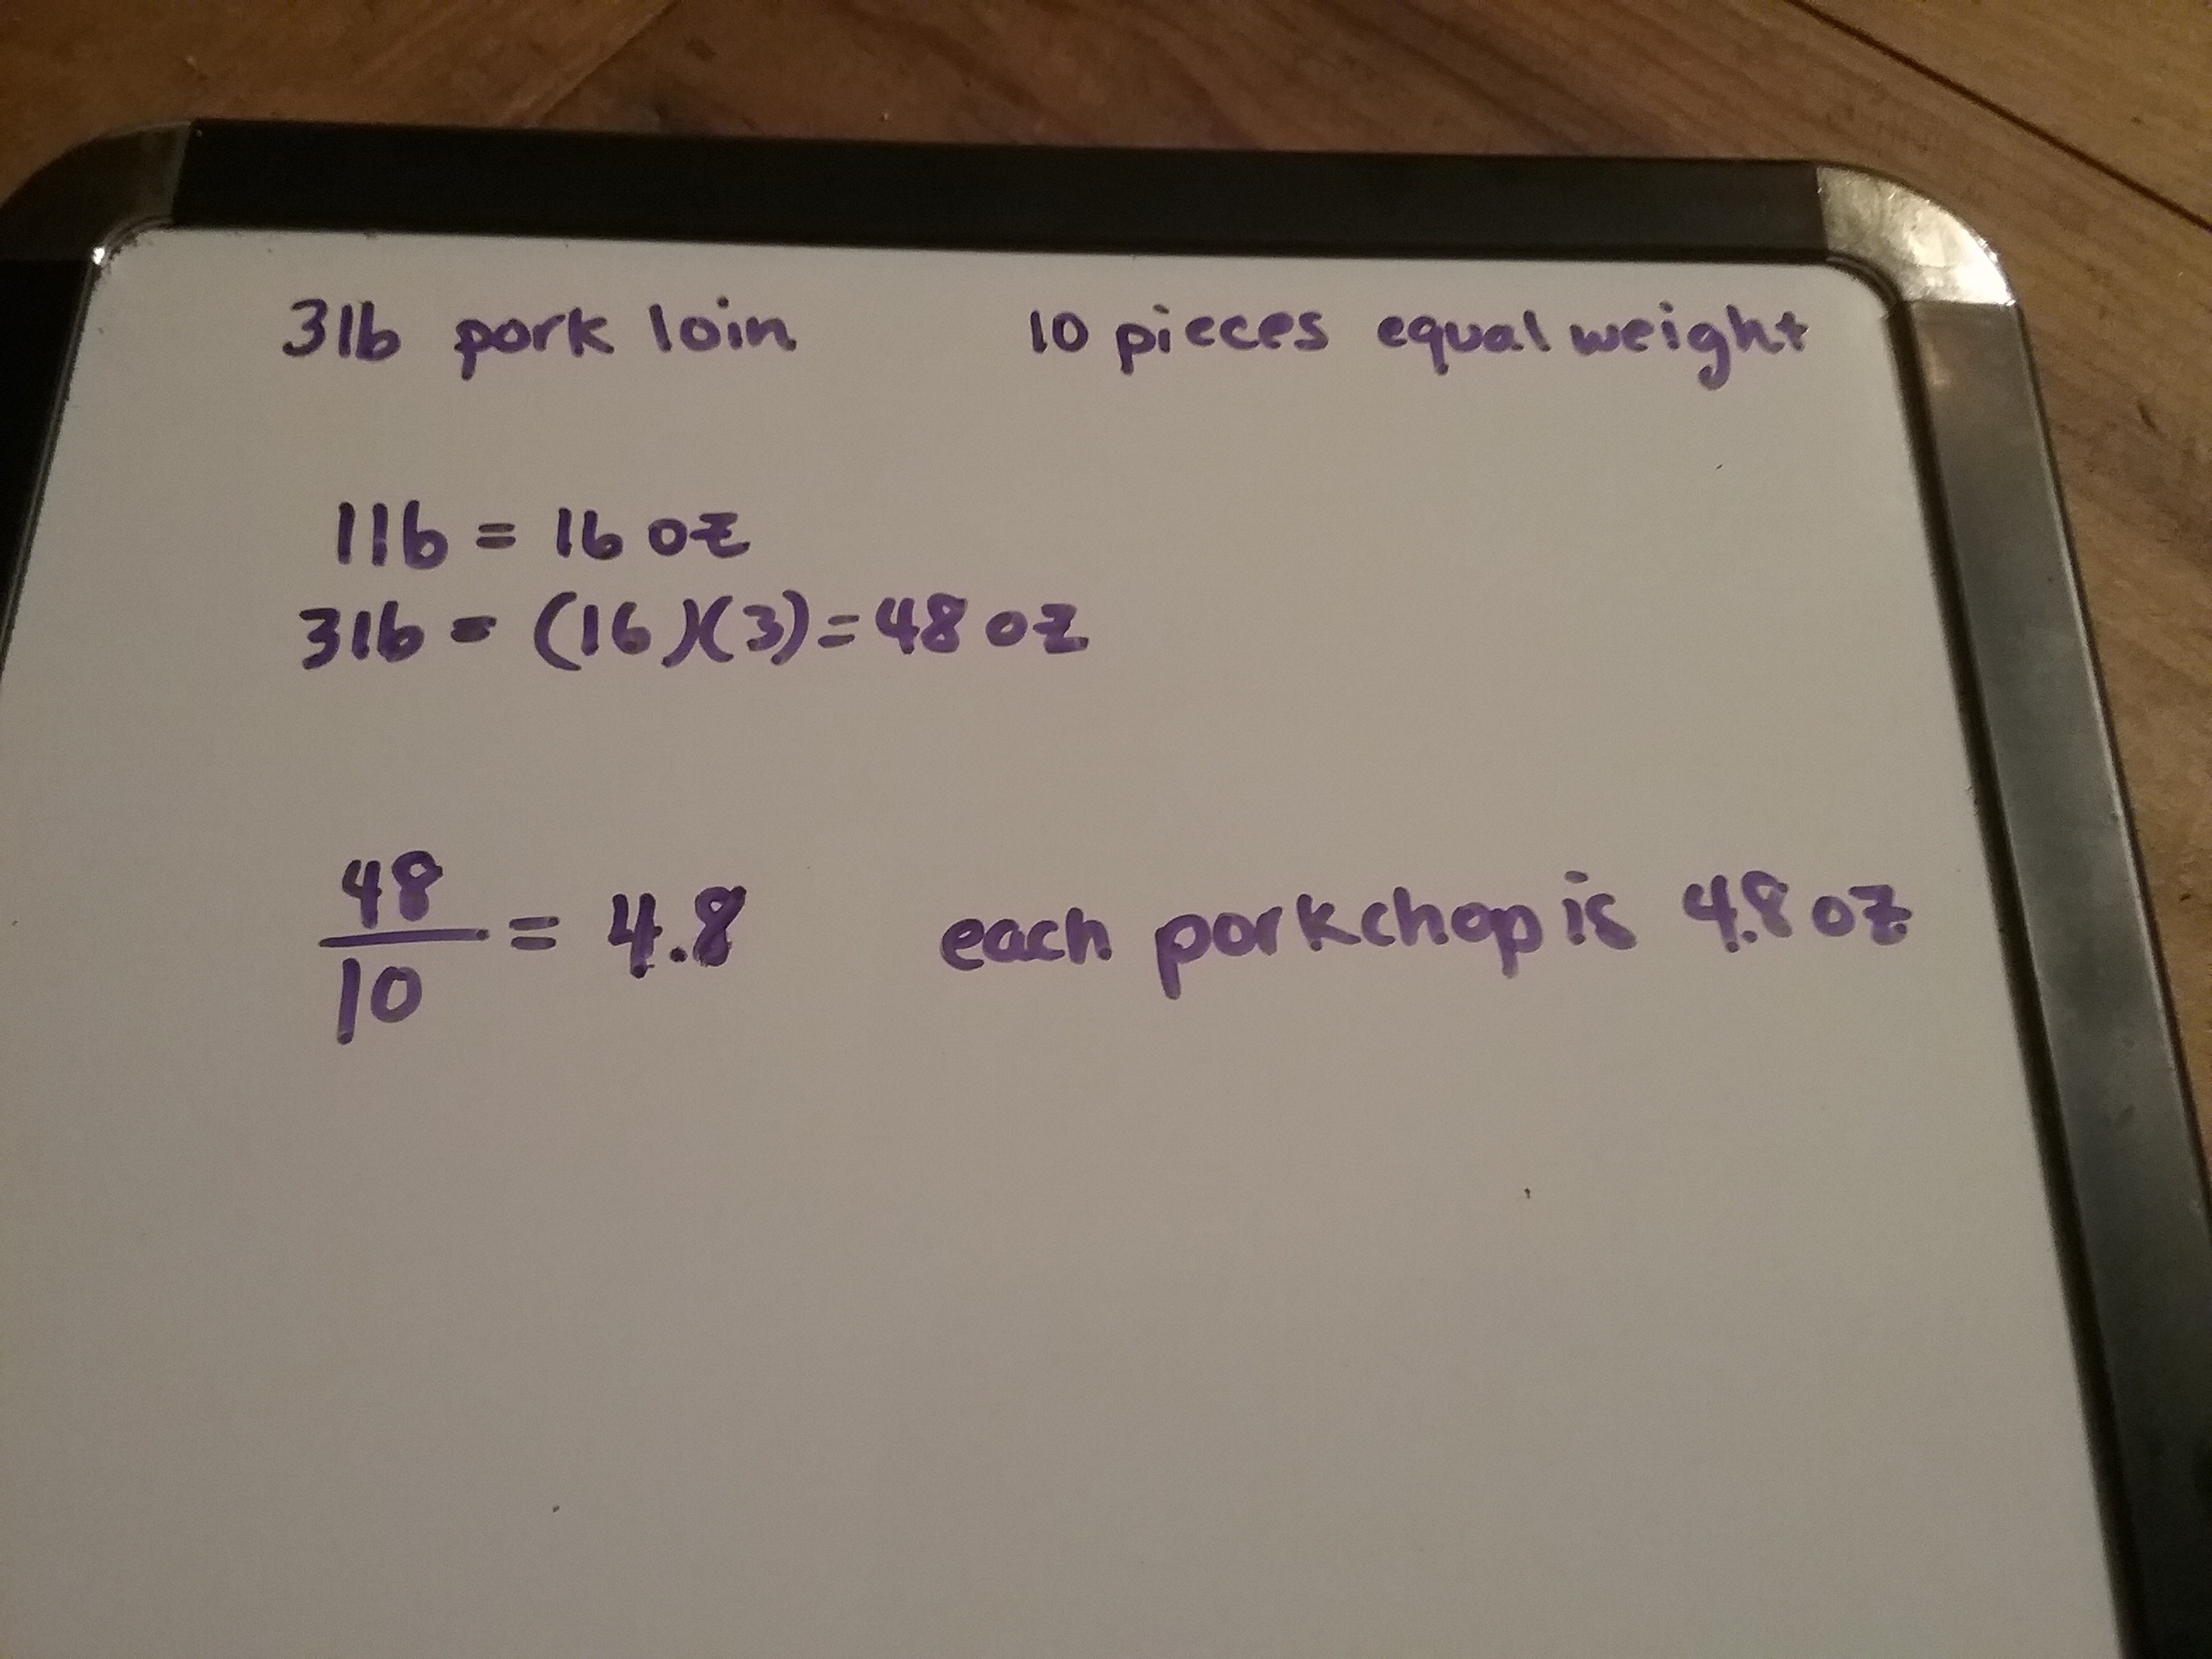 3lb pork loin 10 pieces equal weight
1lb = 16 oz
3lb = (16)(3) = 48 oz
48
10 = 4.8 each porkchop is 4.8 oz